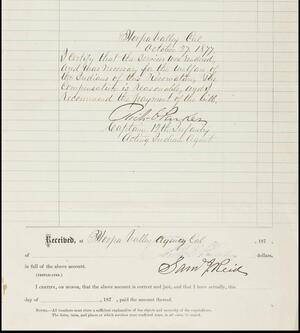 Hoopa Valley Cal
October 27, 1877
I Certify that the Services were rendered,
and was necessary for the welfare of
the Indians of this Reservation, the
Compensation is Reasonable, and I
Recommend the payment of the bill,
Captain 12th Infantry
Acting Indian Agent
Received, at Hoopa Valley Agency Cal, 187
dollars,
in full of the above account.
(TRIPLICATE.)
Sam
I CERTIFY, ON HONOR, that the above account is correct and just, and that I have actually, this
day of , 187 , paid the amount thereof.
NOTE.—All vouchers must show a sufficient explanation of the objects and necessity of the expenditures.
The dates, rates, and places at which services were rendered must in all cases be stated.